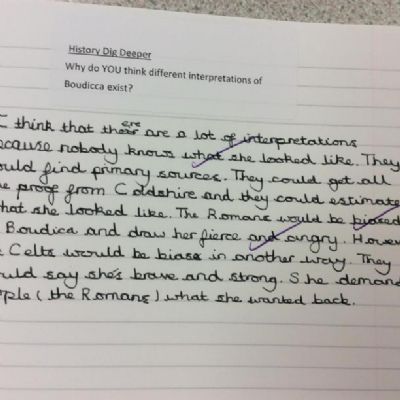 History Dig Deeper
Why do YOU think different interpretations of
Boudicca exist?
I think that there are a lot of interpretations
ecause nobody knows what she looked like. They
ould find primary sources. They could get all
e proof from Coldshire and they could estimate
hat she looked like. The Romans would be biased
Boudica and draw her fierce and angry. Howeve
e Celts would be biass in another way. They
uld say she's brave and strong. She demand
ople (the Romans) what she wanted back.